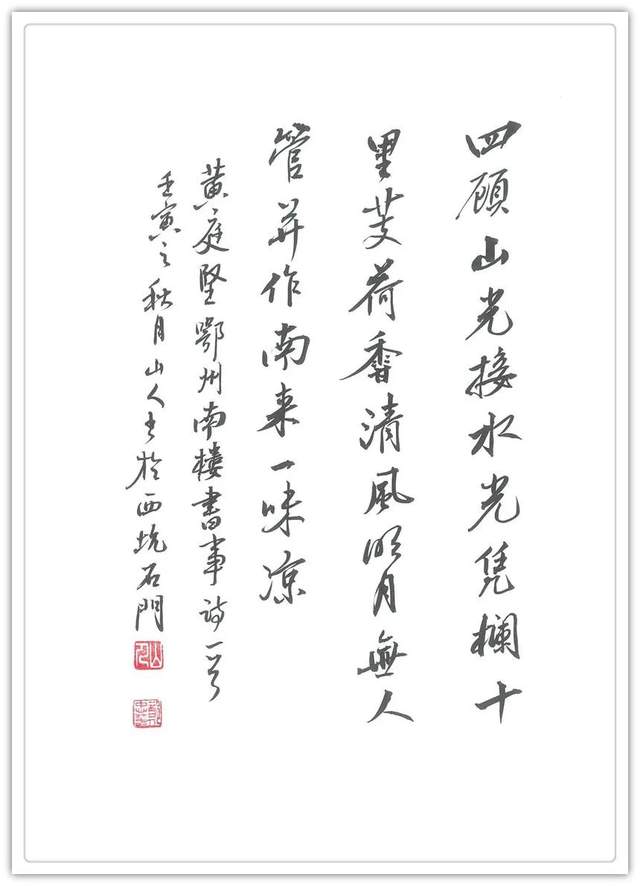 四顾山光接水光凭欄十
里芰荷香清風明月無人
管并作南来一味凉
黄庭坚鄂州南楼書事詩一首
壬寅之秋月山人书於西坑石門